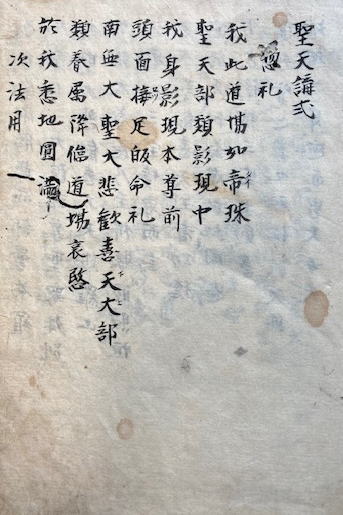 聖天講式
惣礼
我此道場如帝珠
聖天部類影現中
我身影現本尊前
頭面接足皈命礼
南無大聖大悲歓喜天大部
類眷属降臨道場哀愍
於我悉地圓満
次法用